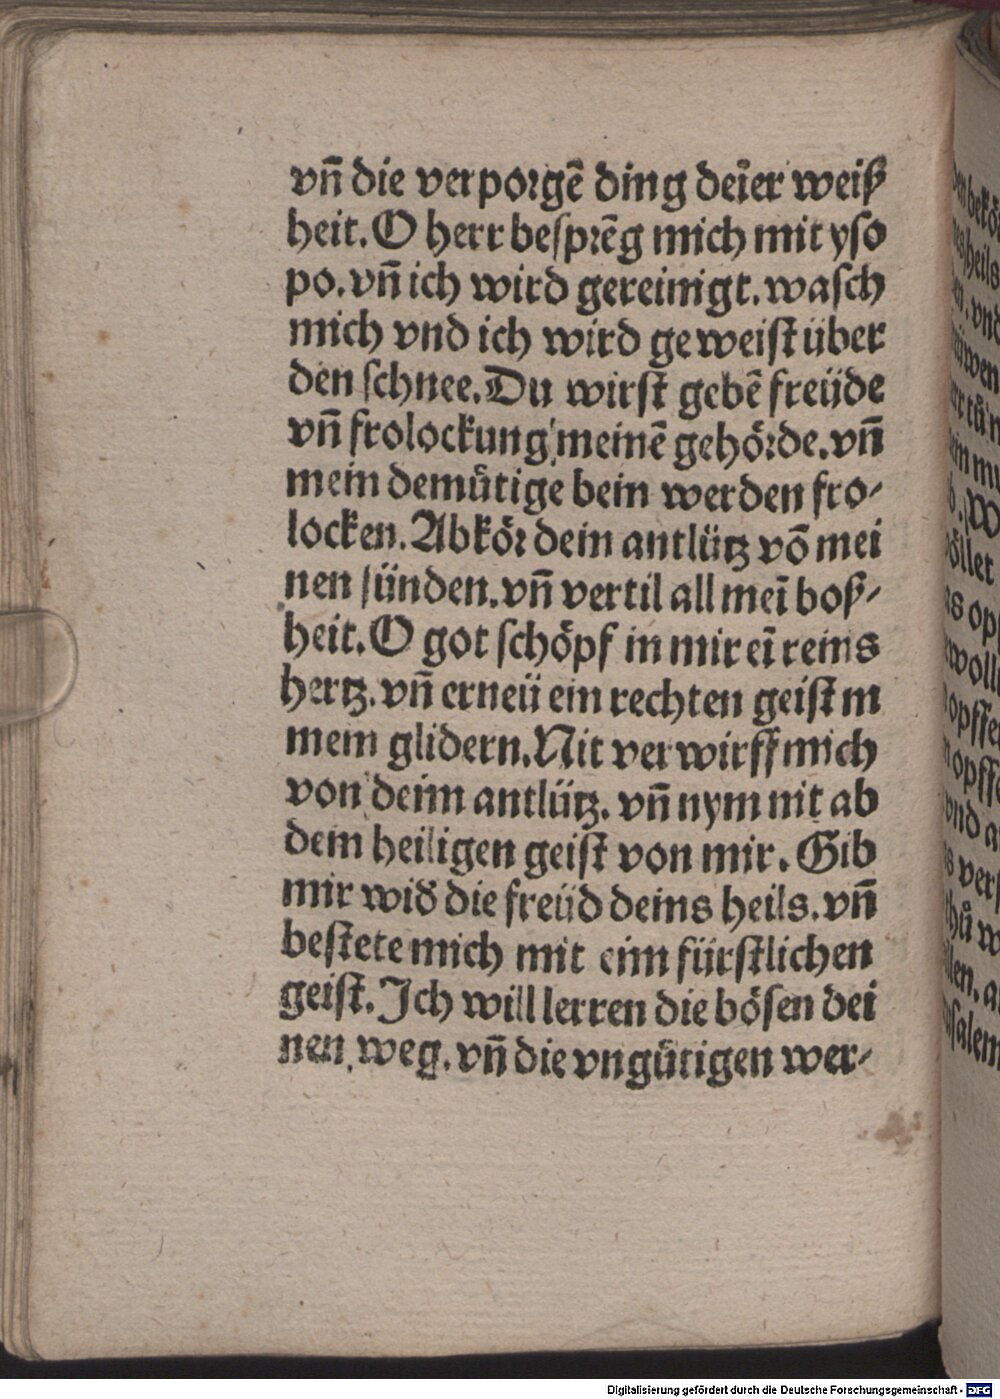 vn̄ die verporgē ding deīer weiß
heit. O herr besprēg mich mit yso
po. vn̄ ich wird gereinigt. wasch
mich vnd ich wird geweist über
den schnee. Du wirst gebē freüde
vn̄ frolockung meinē gehörde. vn̄
mein demütige bein werden fro-
locken. Abkör dein antlütz vō mei
nen sünden. vn̄ vertil all meī boß-
heit. O got schöpf in mir eī reins
hertz. vn̄ erneü ein rechten geist in
mein glidern. Nit verwirff mich
von deim antlütz. vn̄ nym nit ab
dein heiligen geist von mir. Gib
mir wid̛ die freüd deins heils. vn̄
bestete mich mit eim fürstlichen
geist. Ich will lerren die bösen dei
nen weg. vn̄ die vngütigen wer-
Digitalisierung gefördert durch die Deutsche Forschungsgemeinschaft - DFG